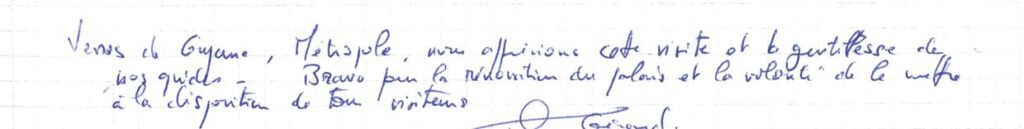 Venus de Guyane, Métropole, nous apprécions cette visite et la gentillesse de
nos guides - Bravo pour la rénovation du palais et la volonté de le mettre
à la disposition de tous visiteurs